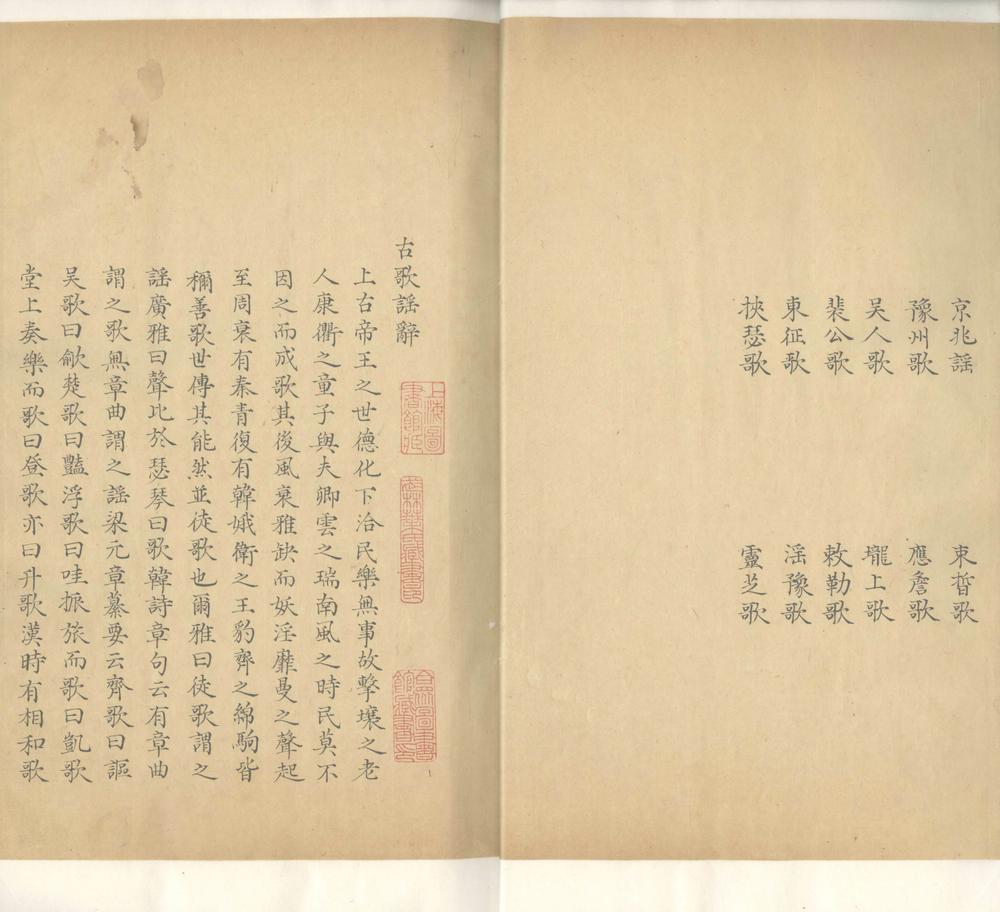 京兆謡 束晳歌
豫州歌 應詹歌
吴人歌 壠上歌
裴公歌 敕勒歌
東征歌 滛豫歌
挾瑟歌 靈芝歌
古歌謡辭
上古帝王之世德化下洽民樂無事故擊壤之老
人康衢之童子與夫卿雲之瑞南風之時民莫不
因之而成歌其後風衰雅缺而妖淫靡曼之聲起
至周衰有秦青復有韓娥衛之王豹齊之綿駒皆
稱善歌世傳其能然並徒歌也爾雅曰徒歌謂之
謡廣雅曰聲比於瑟琴曰歌韓詩章句云有章曲
謂之歌無章曲謂之謡梁元章纂要云齊歌曰謳
吴歌曰歈楚歌曰豔浮歌曰哇振旅而歌曰凱歌
堂上奏樂而歌曰登歌亦曰升歌漢時有相和歌
上海圖書館藏